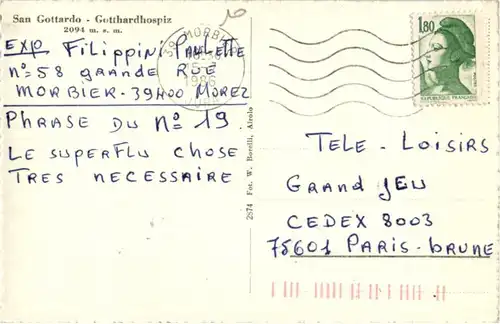 San Gottardo - Gotthardhospiz
2094 m. s. m.
EXP FILIPPINI PAULETTE
n°=58 GRANDE RUE
MORBIER-39400 MOREZ
PHRASE DU N° 19
LE SUPERFLU CHOSE
TRES NECESSAIRE
2874 Fot. W. Borelli, Airolo
39 MORBIER
1986
1,80
REPUBLIQUE FRANÇAISE
TELE-LOISIRS
GRAND JEU
CEDEX 8003
75601 PARIS-BRUNE